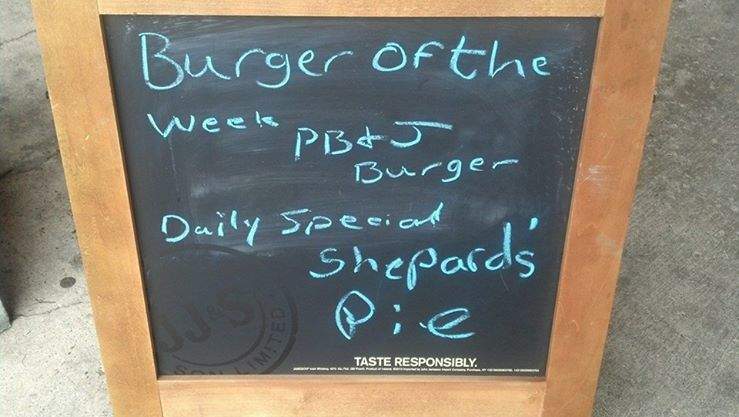 Burger of the
Week
PB+J
Burger
Daily Special
Shepards'
Pie
JJ&S
LIMITED
TASTE RESPONSIBLY.